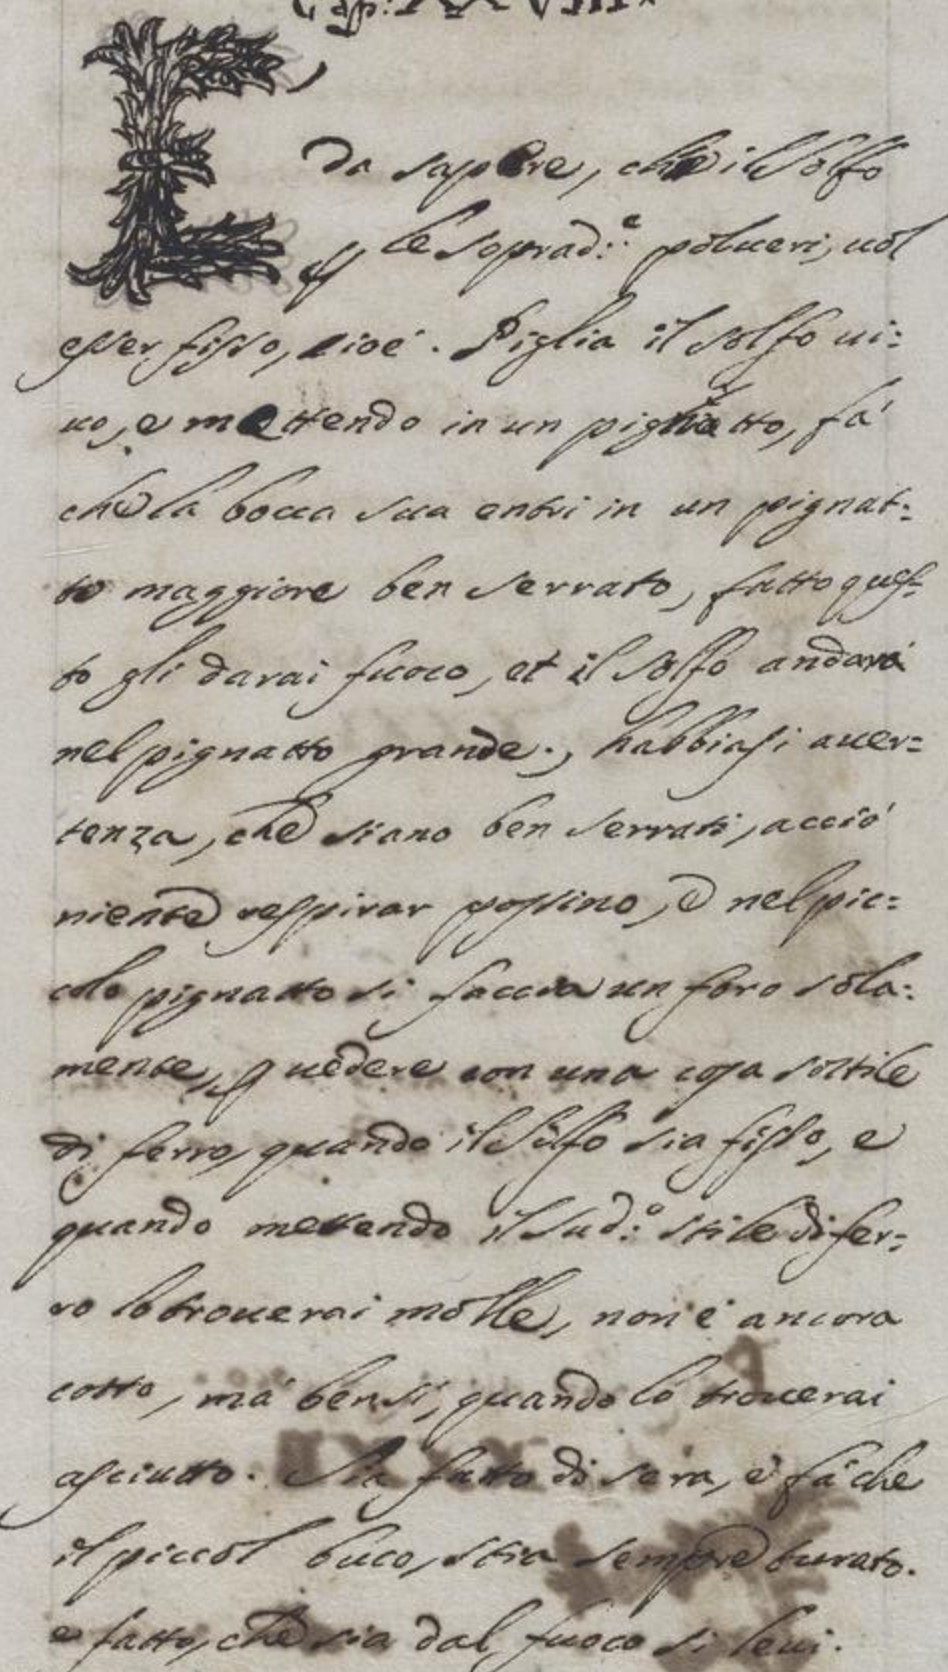 Cap: XXVIII.
E' da sapere, che il Solfo
p le soprad:e polueri, uol
esser fisso, cioè. Piglia il solfo ui:
uo, e mettendo in un pignatto, fà
che la bocca sua entri in un pignat:
to maggiore ben serrato, fatto ques:
to gli darai fuoco, et il solfo andarà
nel pignatto grande., habbiasi auer=
tenza, che siano ben serrati, acciò
niente respirar possino, e nel pic=
colo pignatto si faccia un foro sola:
mente, p uedere con una cosa sottile
di ferro, quando il Solfo sia fisso, e
quando mettendo il sud:o stile di fer=
ro lo trouerai molle, non è ancora
cotto, mà bensì, quando lo trouerai
asciutto. Sia fatto di sera, e fà che
il piccol buco, stia sempre turato.
e fatto, che sia dal fuoco si leui.